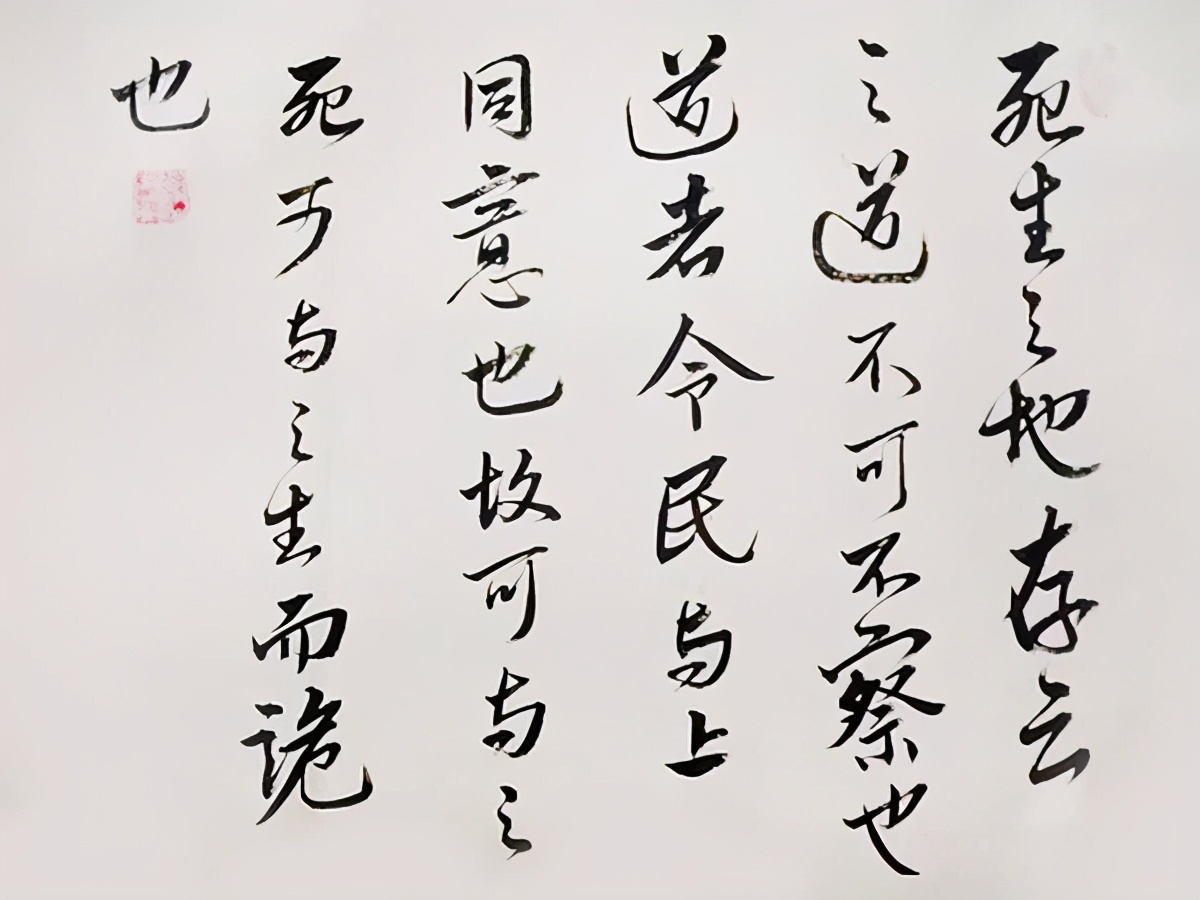 死生之地存亡
之道不可不察也
道者令民与上
同意也故可与之
死可与之生而诡
也